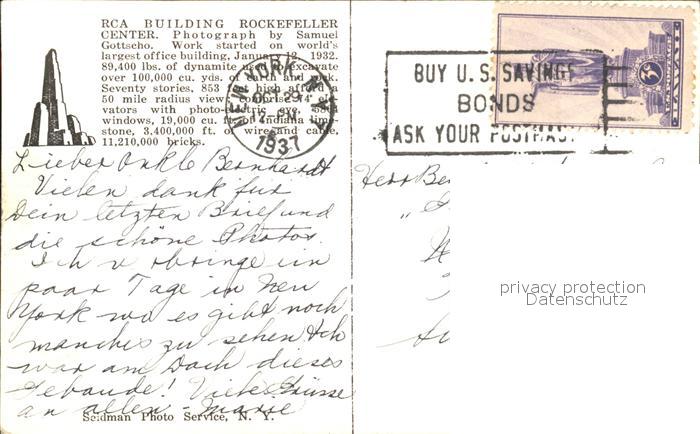 RCA BUILDING ROCKEFELLER
CENTER. Photograph by Samuel
Gottscho. Work started on world's
largest office building, January 12, 1932.
89,400 lbs. of dynamite used to excavate
over 100,000 cu. yds. of earth and rock.
Seventy stories, 853 feet high afford a
50 mile radius view, comprises 74 ele-
vators with photo-electric eye,
windows, 19,000 cu. ft. of Indiana lime-
stone, 3,400,000 ft. of wire and cable,
11,210,000 bricks.
NEW YORK, N.Y.
1937
BUY U.S. SAVINGS
BONDS
ASK YOUR POSTMASTER
3
Lieber Onkle Bernhardt
Vielen dank für
Dein letzten Brief und
die schöne Photos.
Ich v rbringe ein
paar Tage in New
York wo es gibt noch
manches zu sehen Ich
war am Dach dieses
Gebaude! Viele Grüsse
an allen -
Seidman Photo Service, N. Y.
Herr Be
privacy protection
Datenschutz